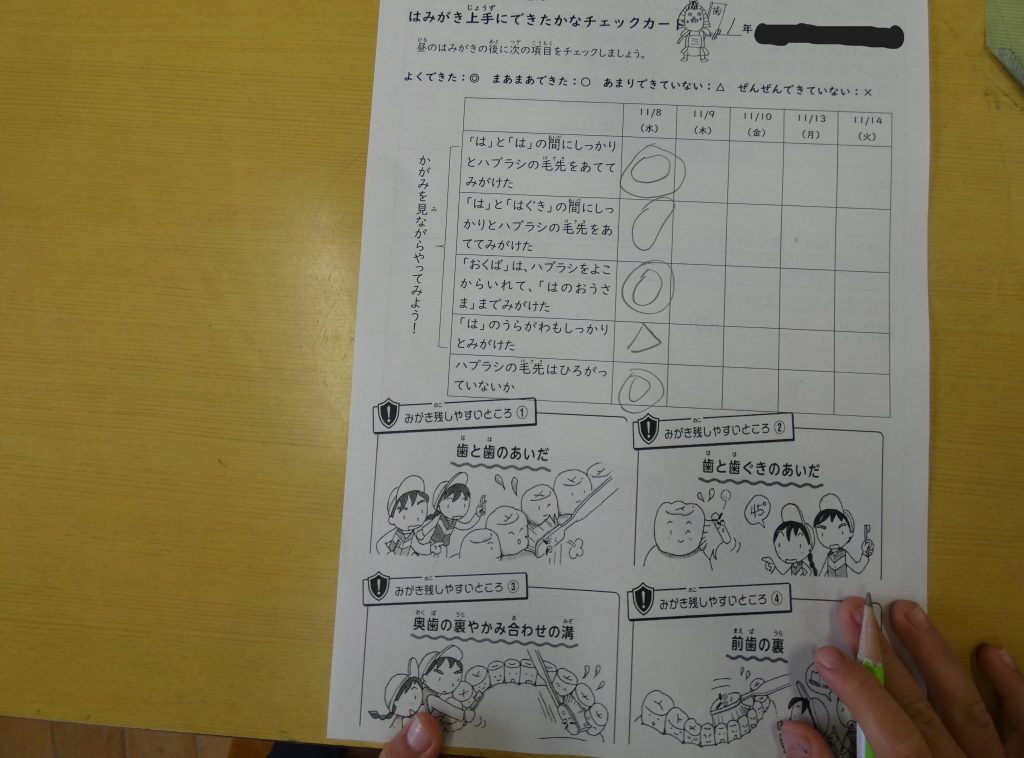 はみがき上手にできたかなチェックカード
歯
年
昼のはみがきの後に次の項目をチェックしましょう。
よくできた：◎ まあまあできた：○ あまりできていない：△ ぜんぜんできていない：×
11/8 11/9 11/10 11/13 11/14
（水） （木） （金） （月） （火）
かがみを見ながらやってみよう！
「は」と「は」の間にしっかり
とハブラシの毛先をあてて
みがけた
◎
「は」と「はぐき」の間にしっ
かりとハブラシの毛先をあ
ててみがけた
○
「おくば」は、ハブラシをよこ
からいれて、「はのおうさ
ま」までみがけた
◎
「は」のうらがわもしっかり
とみがけた
△
ハブラシの毛先はひろがっ
ていないか
◎
みがき残しやすいところ ①
歯と歯のあいだ
みがき残しやすいところ ②
歯と歯ぐきのあいだ
45°
みがき残しやすいところ ③
奥歯の裏やかみ合わせの溝
みがき残しやすいところ ④
前歯の裏